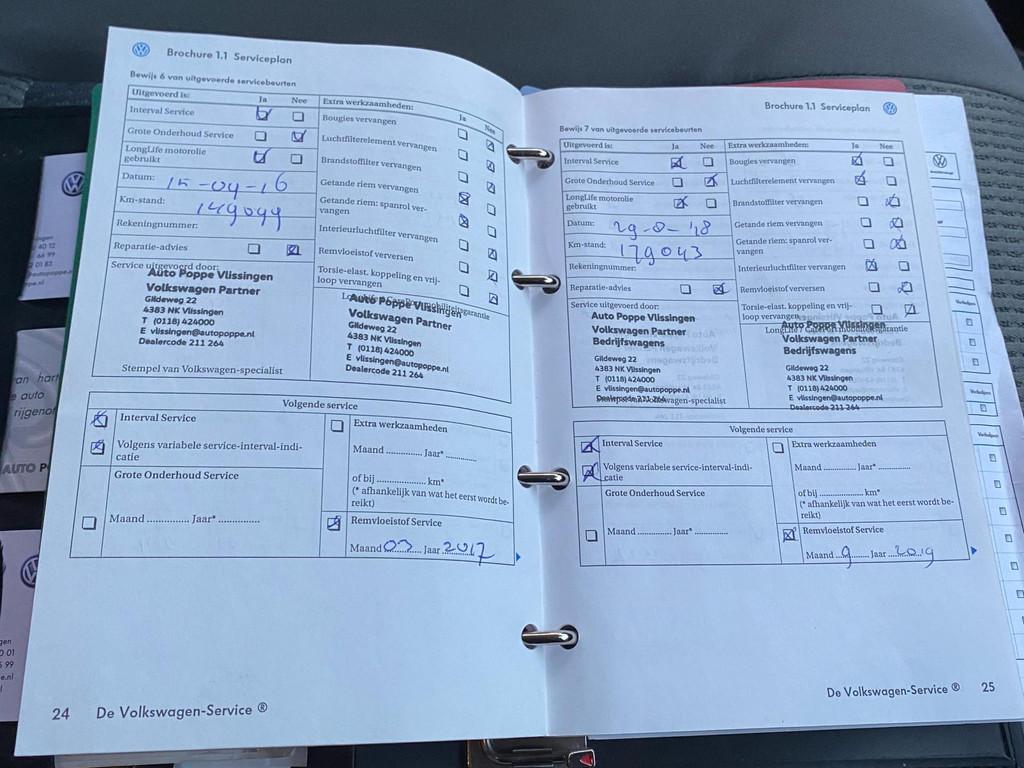 Brochure 1.1 Serviceplan
Bewijs 6 van uitgevoerde servicebeurten
Uitgevoerd is: Ja Nee
Interval Service
Grote Onderhoud Service
LongLife motorolie
gebruikt
Datum: 15-04-16
Km-stand: 149099
Rekeningnummer:
Reparatie-advies
Service uitgevoerd door:
Auto Poppe Vlissingen
Volkswagen Partner
Gildeweg 22
4383 NK Vlissingen
T (0118) 424000
E vlissingen@autopoppe.nl
Dealercode 211 264
Stempel van Volkswagen-specialist
Extra werkzaamheden: Ja Nee
Bougies vervangen
Luchtfilterelement vervangen
Brandstoffilter vervangen
Getande riem vervangen
Getande riem: spanrol ver-
vangen
Interieurluchtfilter vervangen
Remvloeistof verversen
Torsie-elast. koppeling en vrij-
loop vervangen
Auto Poppe Vlissingen
Volkswagen Partner
Gildeweg 22
4383 NK Vlissingen
T (0118) 424000
E vlissingen@autopoppe.nl
Dealercode 211 264
Volgende service
Interval Service
Volgens variabele service-interval-indi-
catie
Grote Onderhoud Service
Maand .............. Jaar* ..............
Extra werkzaamheden
Maand ............ Jaar* ............
of bij .................. km*
(* afhankelijk van wat het eerst wordt be-
reikt)
Remvloeistof Service
Maand 03 Jaar 2017
24 De Volkswagen-Service ®
Brochure 1.1 Serviceplan
Bewijs 7 van uitgevoerde servicebeurten
Uitgevoerd is: Ja Nee
Interval Service
Grote Onderhoud Service
LongLife motorolie
gebruikt
Datum: 29-8-'18
Km-stand: 179043
Rekeningnummer:
Reparatie-advies
Service uitgevoerd door:
Auto Poppe Vlissingen
Volkswagen Partner
Bedrijfswagens
Gildeweg 22
4383 NK Vlissingen
T (0118) 424000
E vlissingen@autopoppe.nl
Dealercode 211 264
Extra werkzaamheden: Ja Nee
Bougies vervangen
Luchtfilterelement vervangen
Brandstoffilter vervangen
Getande riem vervangen
Getande riem: spanrol ver-
vangen
Interieurluchtfilter vervangen
Remvloeistof verversen
Torsie-elast. koppeling en vrij-
loop vervangen
Auto Poppe Vlissingen
Volkswagen Partner
Bedrijfswagens
Gildeweg 22
4383 NK Vlissingen
T (0118) 424000
E vlissingen@autopoppe.nl
Dealercode 211 264
Volgende service
Interval Service
Volgens variabele service-interval-indi-
catie
Grote Onderhoud Service
Maand ............ Jaar* ............
Extra werkzaamheden
Maand ............ Jaar* ............
of bij .................. km*
(* afhankelijk van wat het eerst wordt be-
reikt)
Remvloeistof Service
Maand 9 Jaar 2019
De Volkswagen-Service ® 25